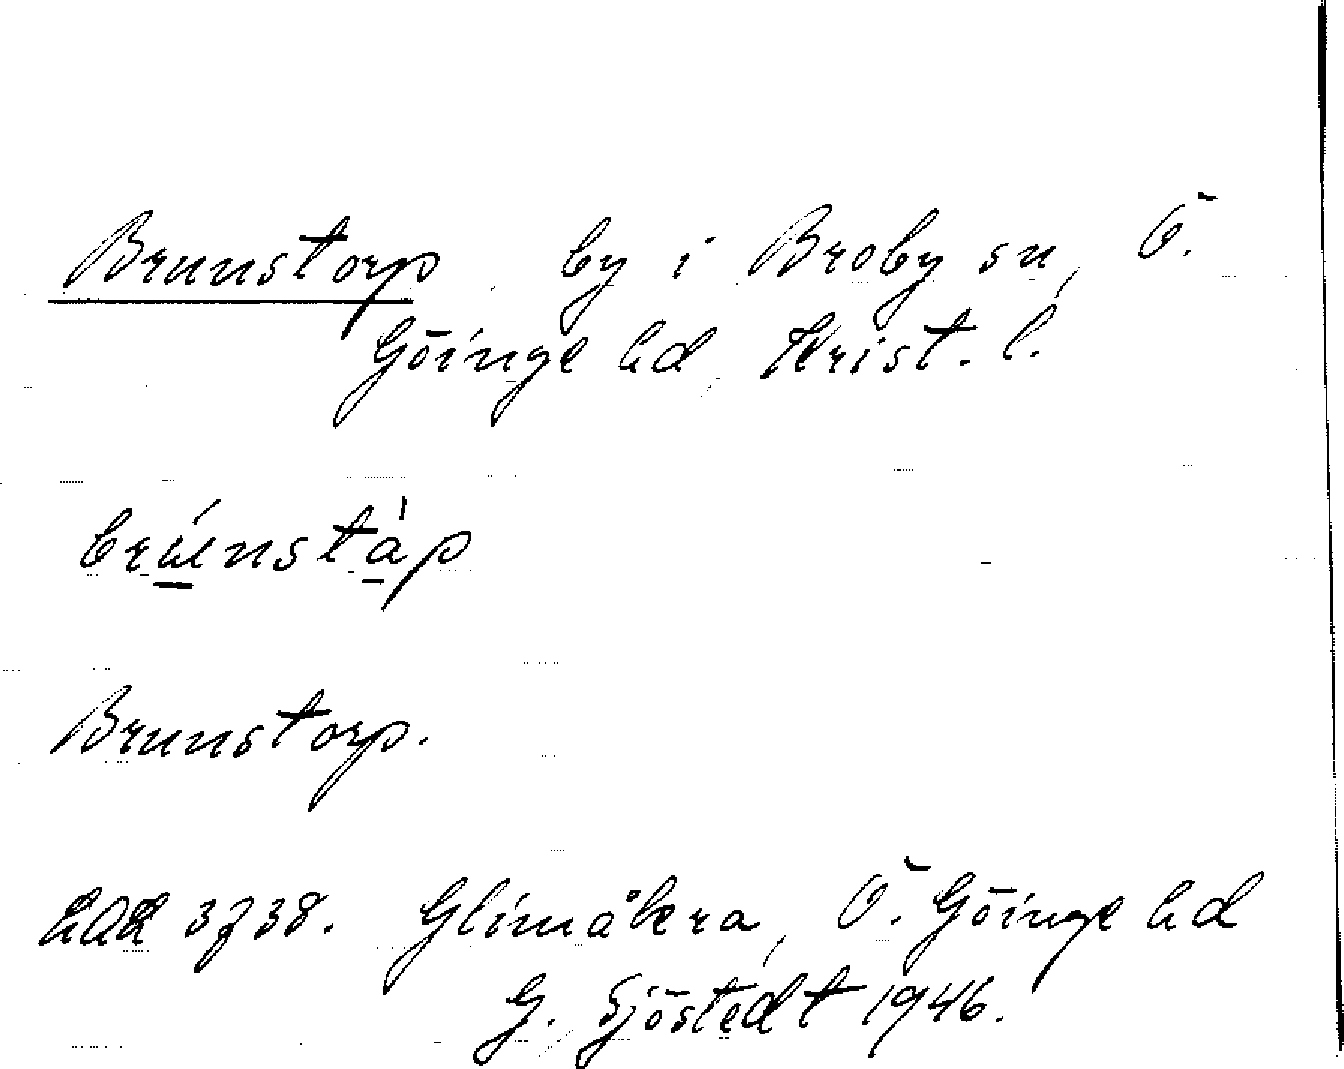 Brunstorp by i Broby sn, Ö.
Göinge hd, Krist. l.
Brunstorp.
3738. Glimåkra, Ö. Göinge hd
G. Sjöstedt 1946.